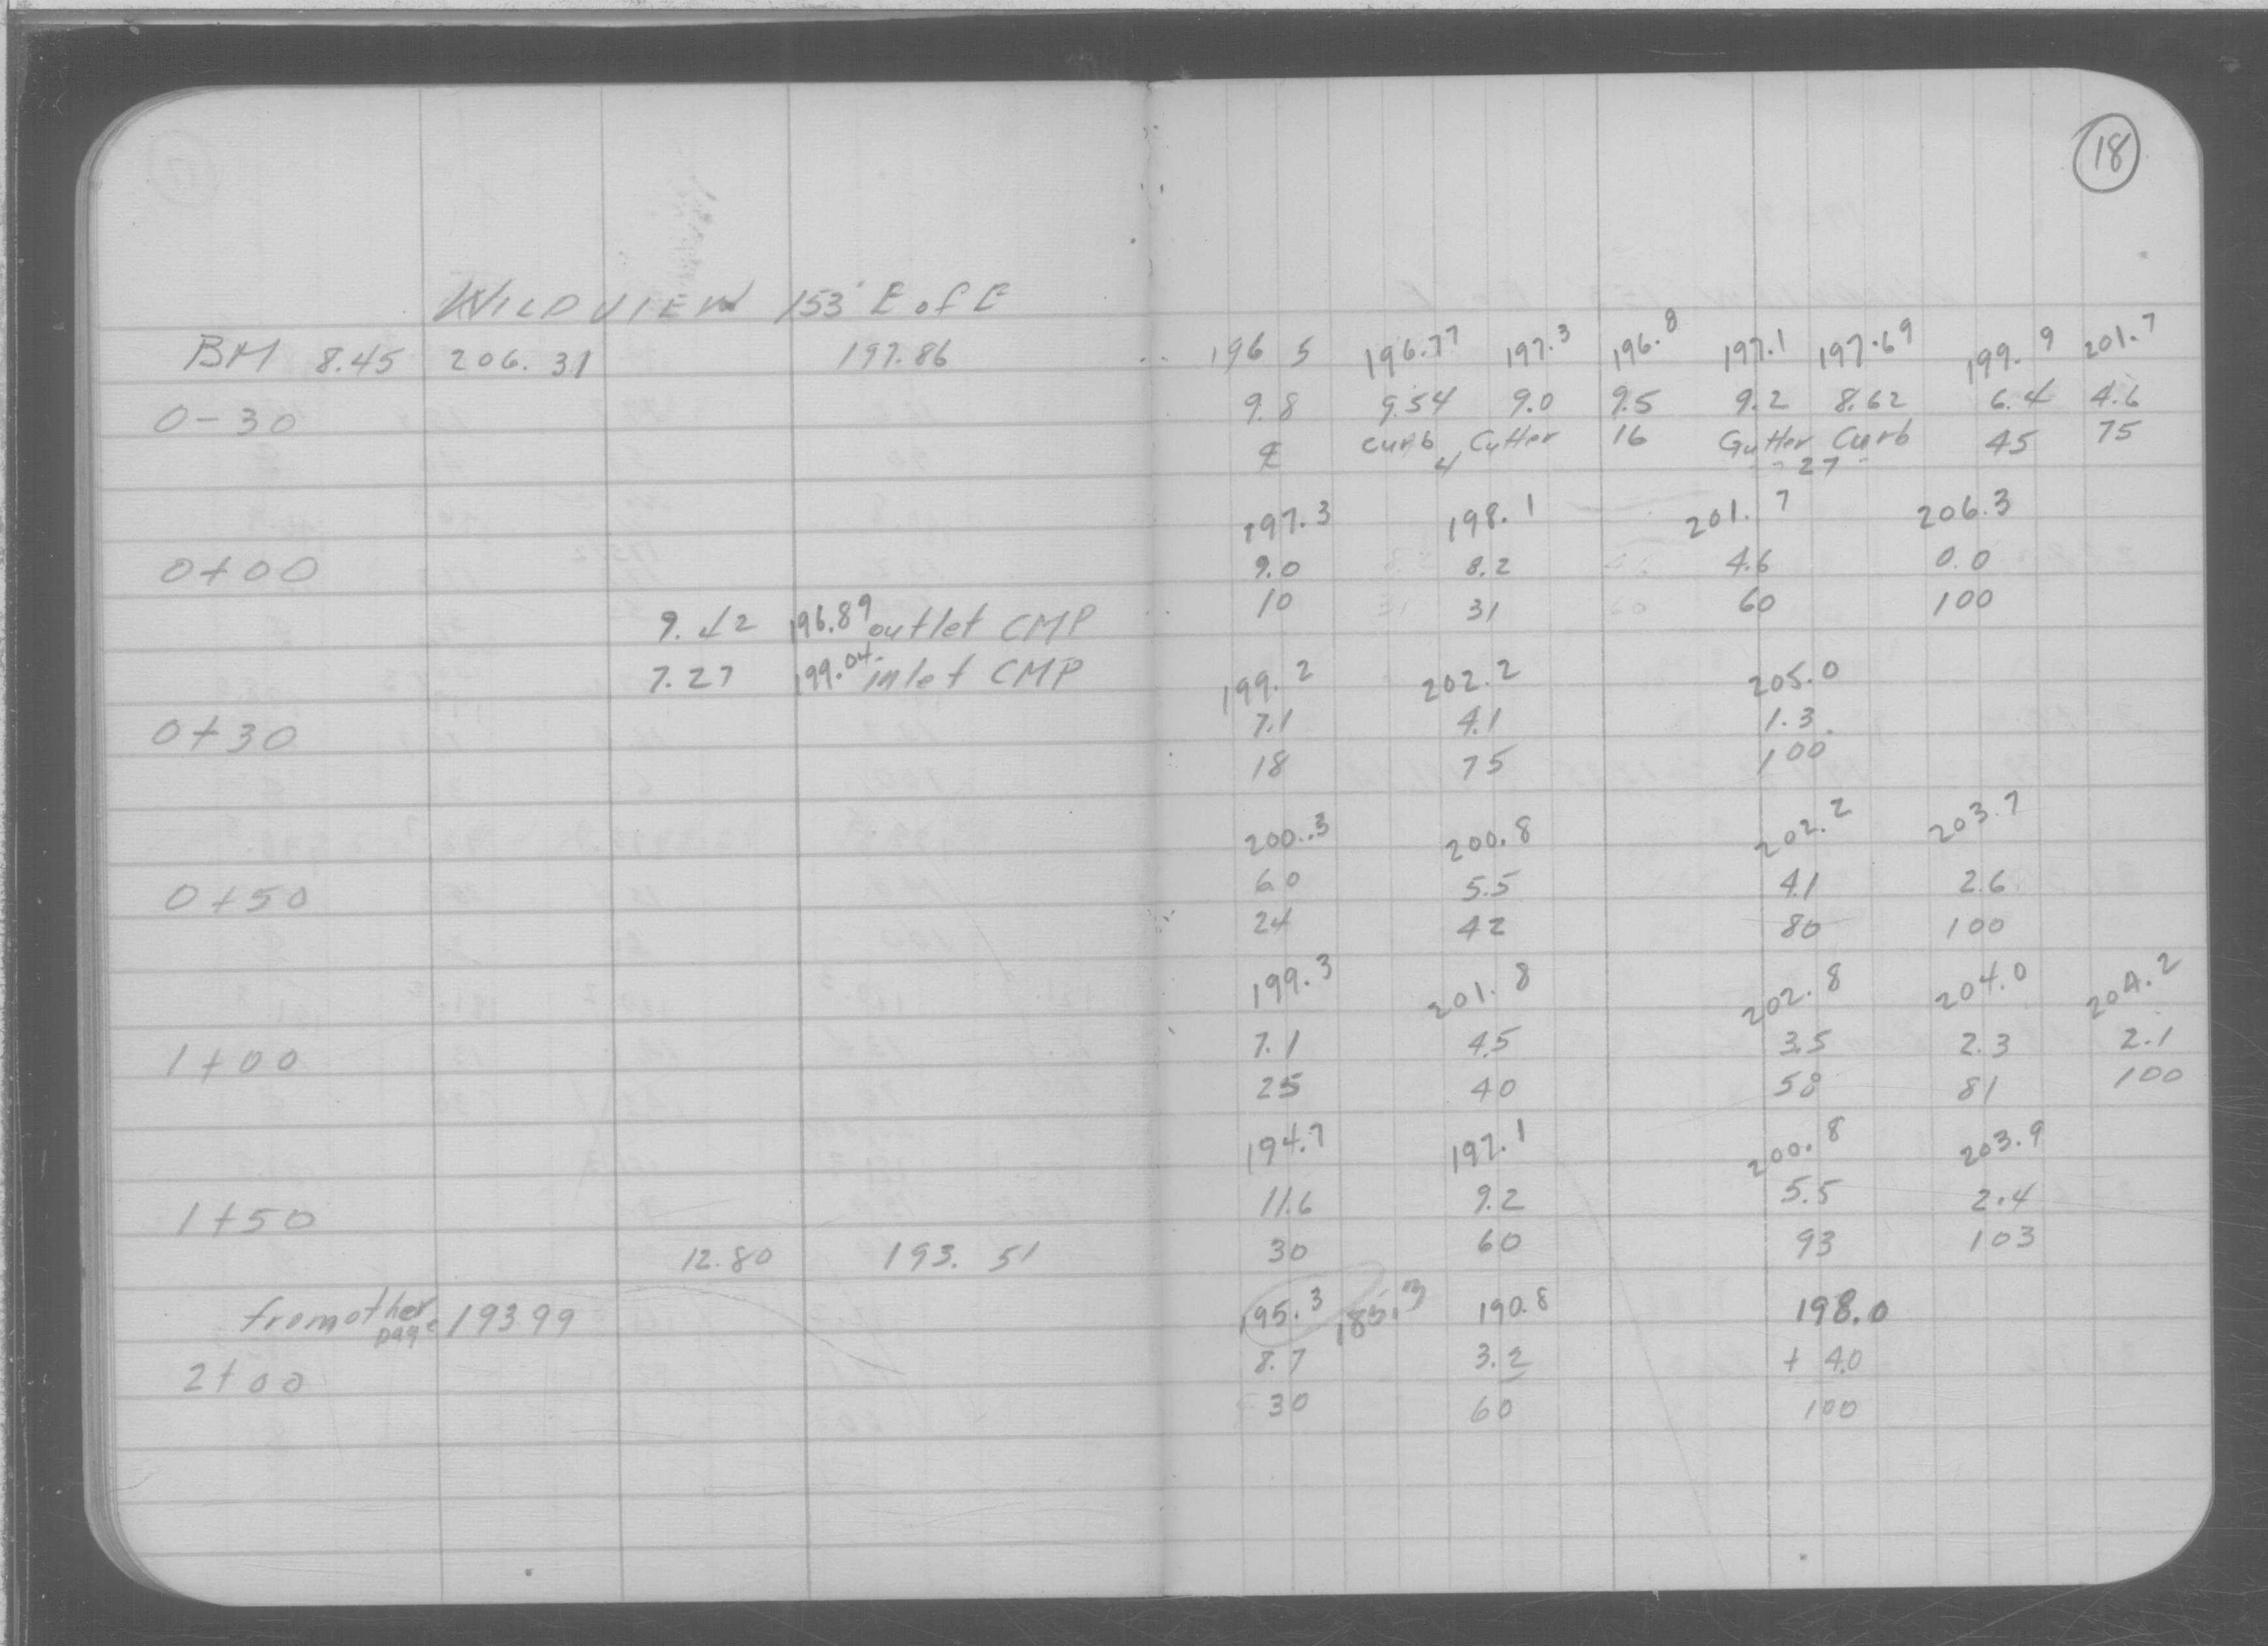 18
WILDVIEW 153' E of E
BM 8.45 206.31 197.86
196 5 196.77 197.3 196.8 197.1 197.69 199.9 201.7
0-30
9.8 9.54 9.0 9.5 9.2 8.62 6.4 4.6
℄ curb Cutter 16 Gutter Curb 45 75
4 27
197.3 198.1 201.7 206.3
0+00
9.0 8.2 4.6 0.0
10 31 60 100
9.42 196.89 outlet CMP
7.27 199.04 inlet CMP
199.2 202.2 205.0
0+30
7.1 4.1 1.3
18 75 100
200.3 200.8 202.2 203.7
0+50
6.0 5.5 4.1 2.6
24 42 80 100
199.3 201.8 202.8 204.0 204.2
1+00
7.1 4.5 3.5 2.3 2.1
25 40 58 81 100
194.7 197.1 200.8 203.9
1+50
11.6 9.2 5.5 2.4
30 60 93 103
12.80 193.51
from other page 193 99
195.3 185.3 190.8 198.0
2+00
8.7 3.2 + 4.0
30 60 100